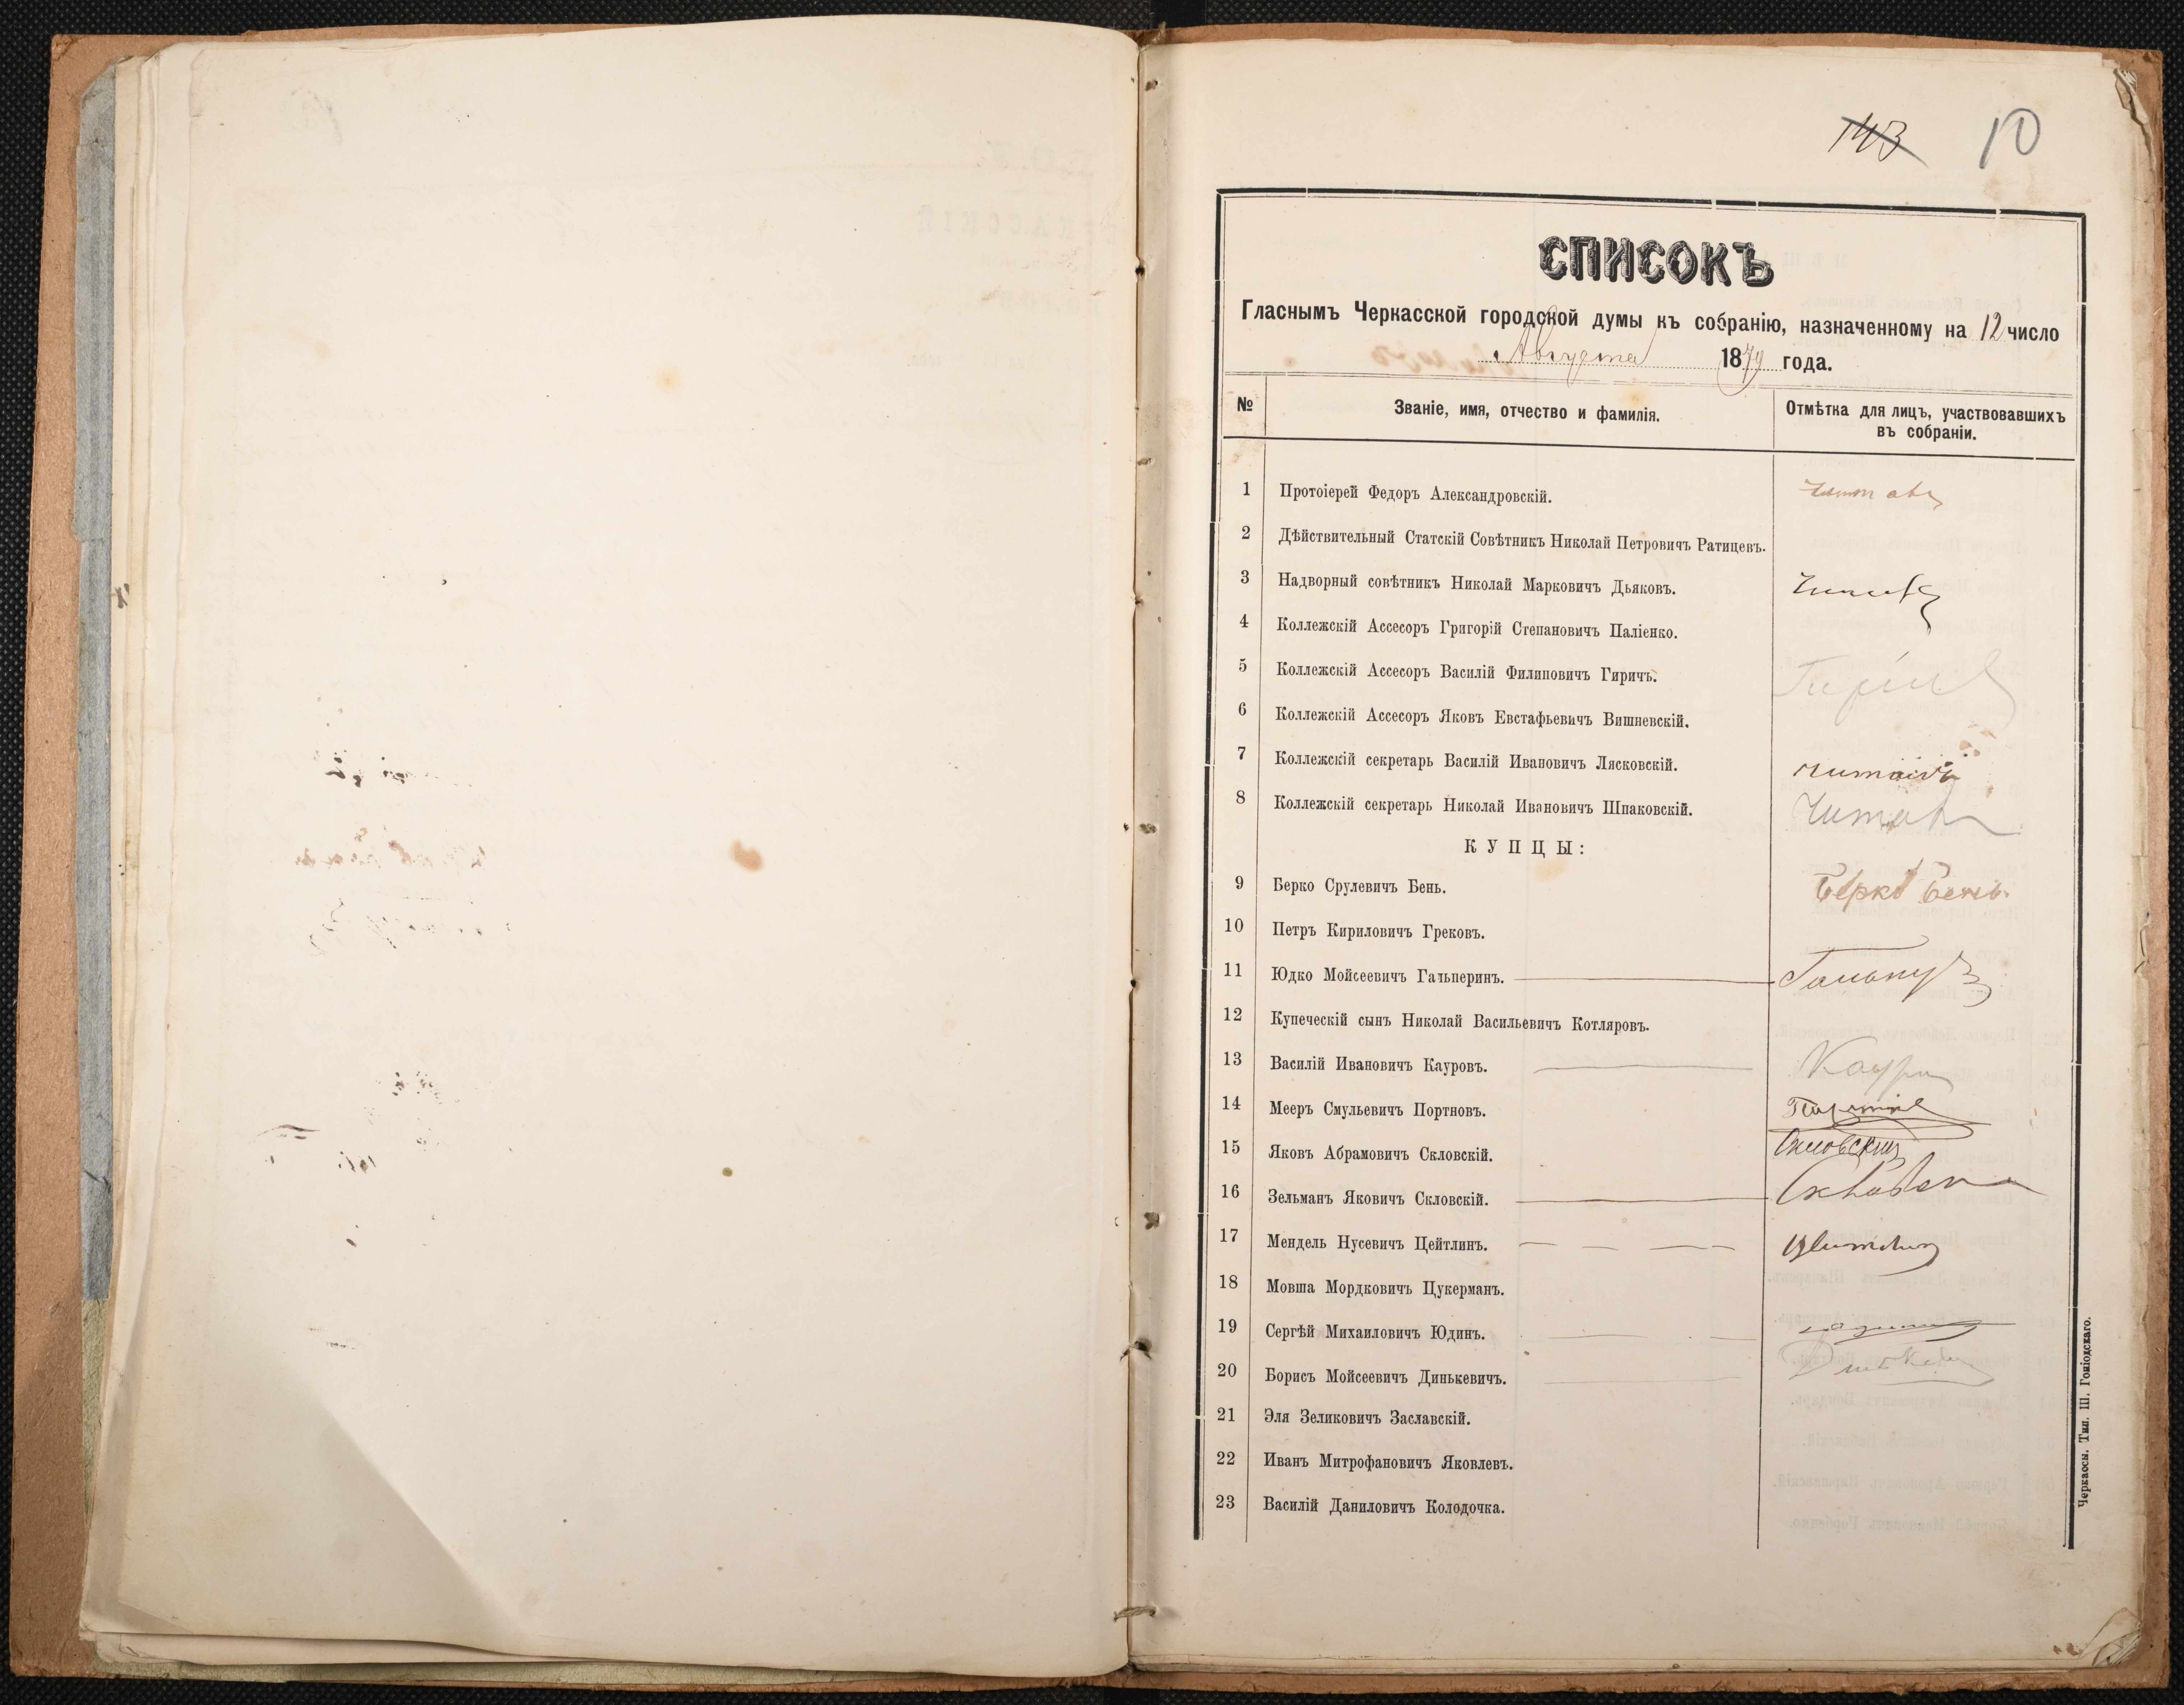 143 10
СПИСОКЪ
Гласнымъ Черкасской городской думы къ собранію, назначенному на 12 число
Августа 1879 года.
№ Званіе, имя, отчество и фамилія. Отмѣтка для лицъ, участвовавшихъ
въ собраніи.
1 Протоіерей Федоръ Александровскій. Читалъ
2 Дѣйствительный Статскій Совѣтникъ Николай Петровичъ Ратицевъ.
3 Надворный совѣтникъ Николай Марковичъ Дьяковъ.
4 Коллежскій Ассесоръ Григорій Степановичъ Паліенко.
5 Коллежскій Ассесоръ Василій Филиповичъ Гиричъ. Гиричъ
6 Коллежскій Ассесоръ Яковъ Евстафьевичъ Вишневскій.
7 Коллежскій секретарь Василій Ивановичъ Лясковскій. читалъ
8 Коллежскій секретарь Николай Ивановичъ Шпаковскій. Читалъ
КУПЦЫ:
9 Берко Срулевичъ Бень. Берко Бень.
10 Петръ Кириловичъ Грековъ.
11 Юдко Мойсеевичъ Гальперинъ.
12 Купеческій сынъ Николай Васильевичъ Котляровъ.
13 Василій Ивановичъ Кауровъ.
14 Мееръ Смульевичъ Портновъ.
15 Яковъ Абрамовичъ Скловскій. Скловскій
16 Зельманъ Яковичъ Скловскій.
17 Мендель Нусевичъ Цейтлинъ.
18 Мовша Мордковичъ Цукерманъ.
19 Сергѣй Михаиловичъ Юдинъ.
20 Борисъ Мойсеевичъ Динькевичъ.
21 Эля Зеликовичъ Заславскій.
22 Иванъ Митрофановичъ Яковлевъ.
23 Василій Даниловичъ Колодочка.
Черкассы. Тип. Ш. Гоніодскаго.